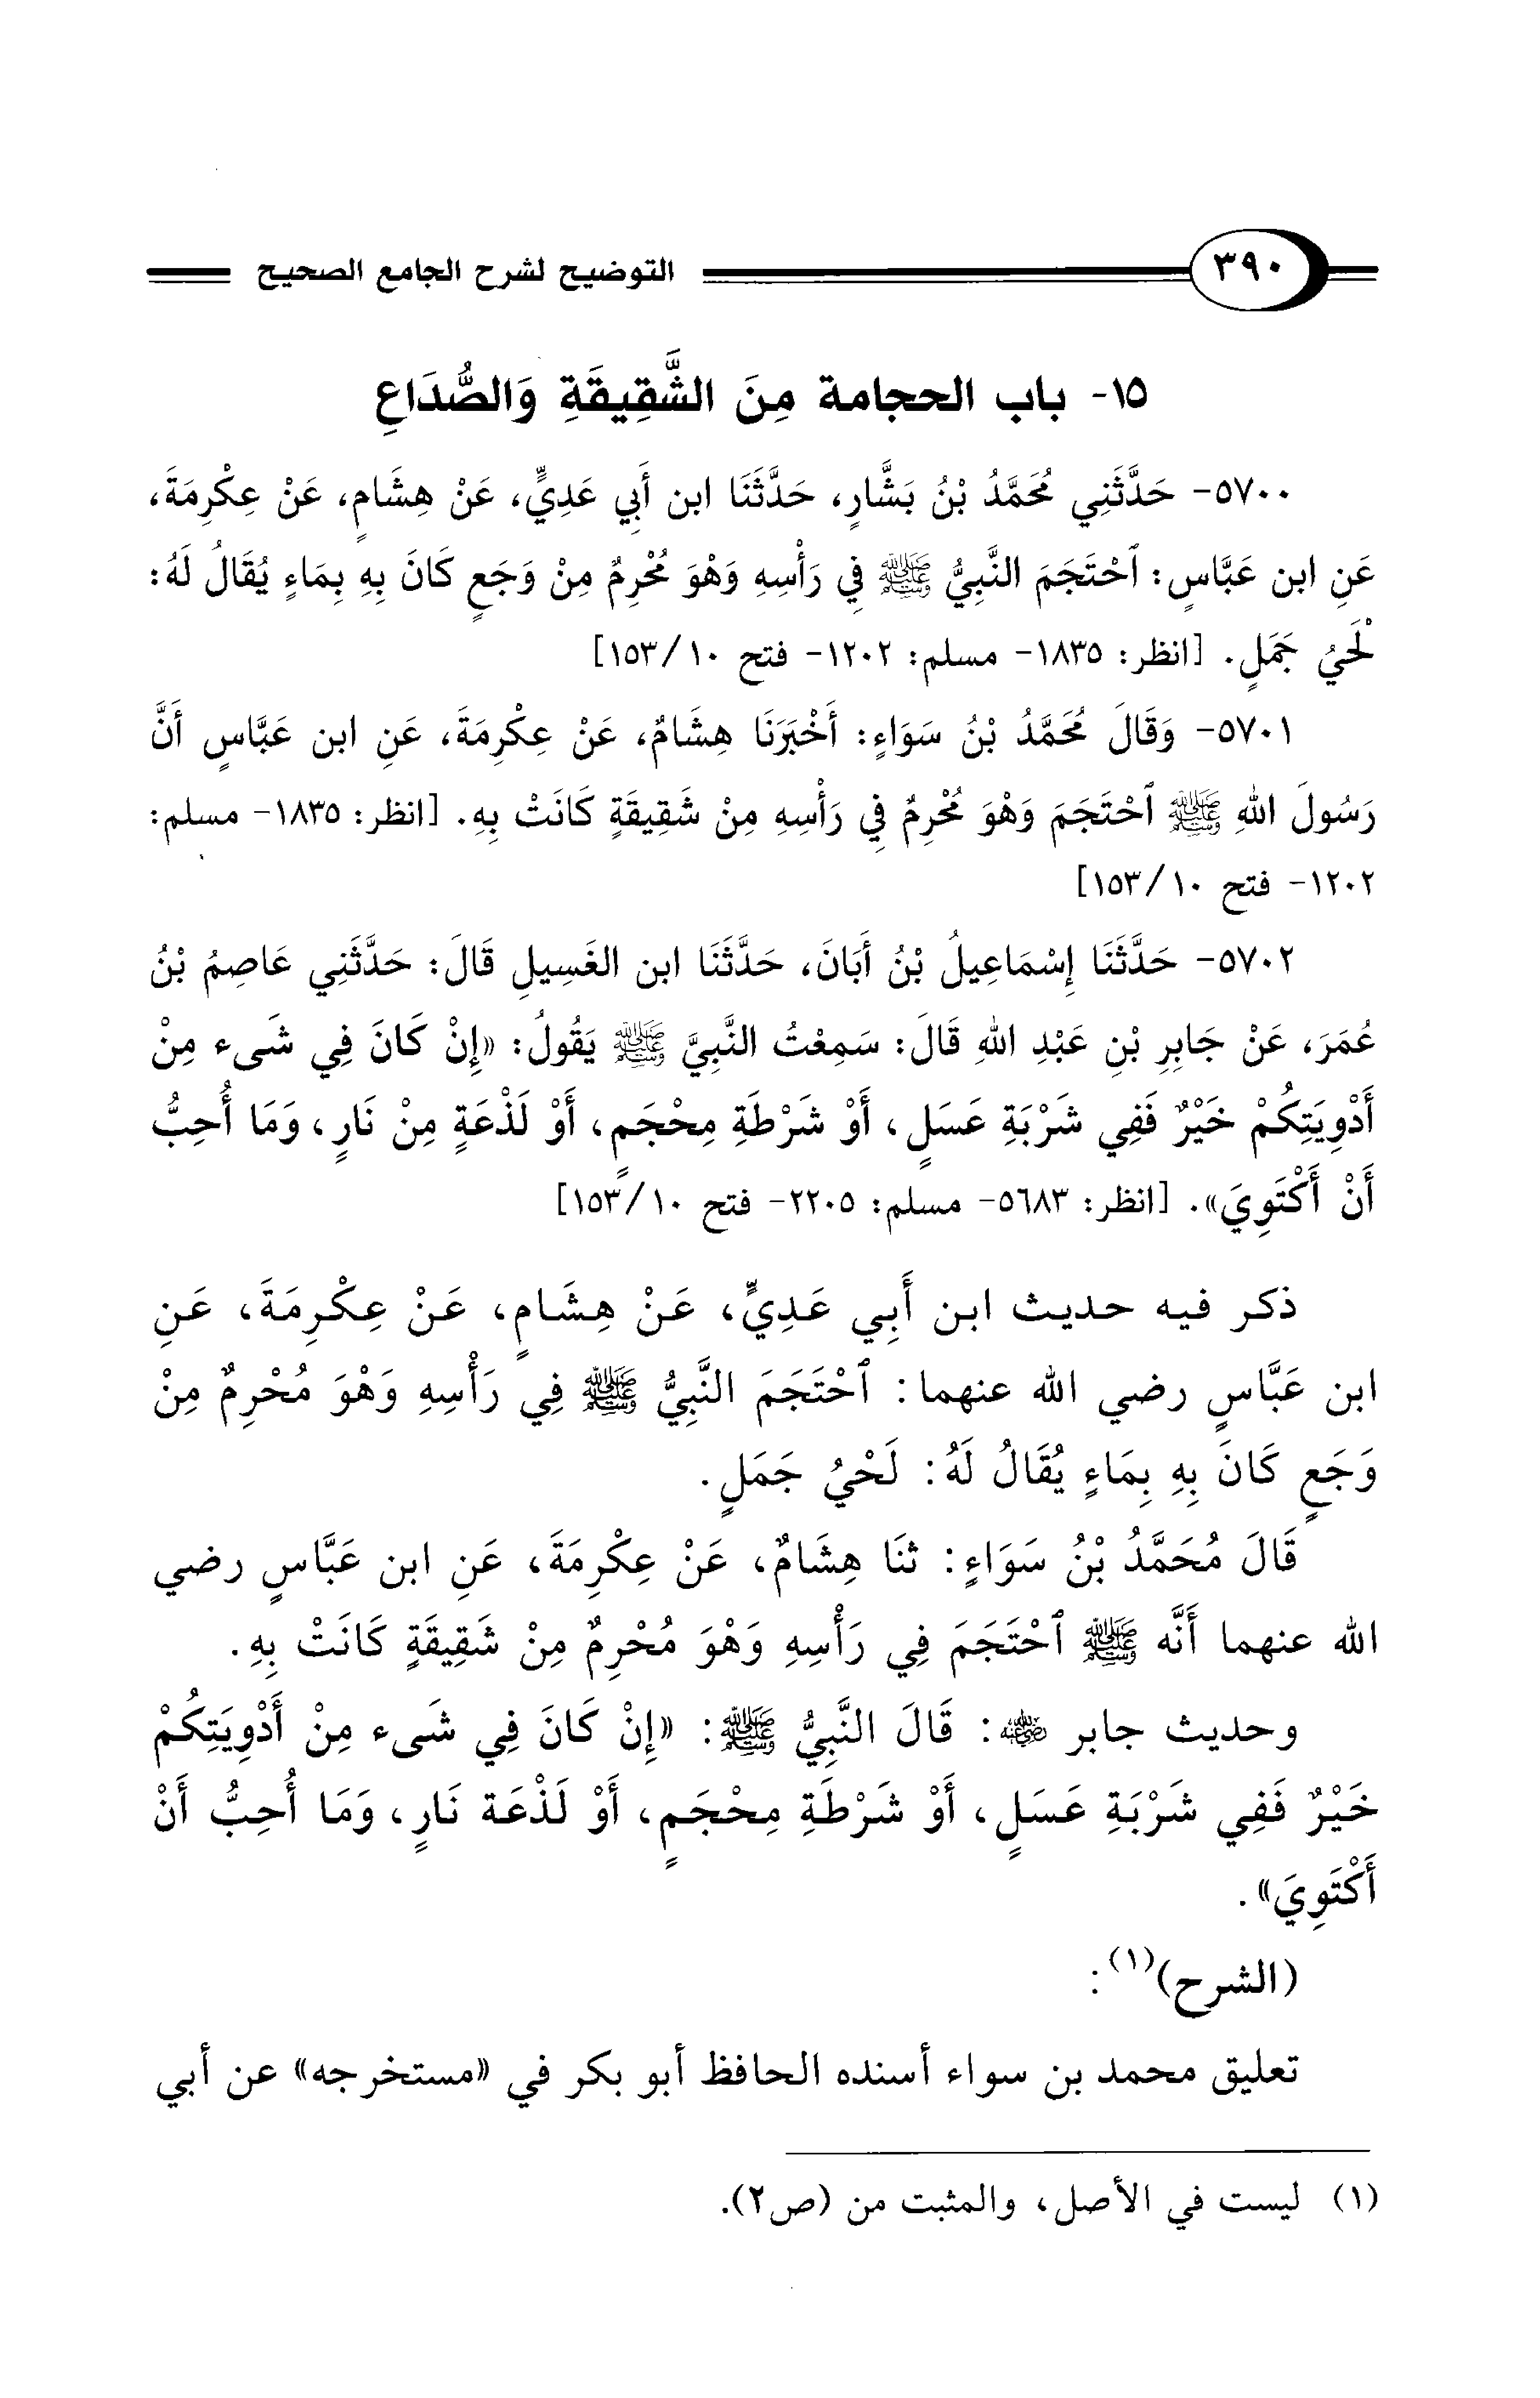 ٣٩٠ التوضيح لشرح الجامع الصحيح
١٥- باب الحجامة مِنَ الشَّقِيقَةِ وَالصُّدَاعِ
٥٧٠٠- حَدَّثَنِي مُحَمَّدُ بْنُ بَشَّارٍ، حَدَّثَنَا ابن أَبِي عَدِيٍّ، عَنْ هِشَامٍ، عَنْ عِكْرِمَةَ،
عَنِ ابن عَبَّاسٍ: ٱحْتَجَمَ النَّبِيُّ ﷺ فِي رَأْسِهِ وَهْوَ مُحْرِمٌ مِنْ وَجَعٍ كَانَ بِهِ بِمَاءٍ يُقَالُ لَهُ:
لَحْيُ جَمَلٍ. [انظر: ١٨٣٥- مسلم: ١٢٠٢- فتح ١٠/١٥٣]
٥٧٠١- وَقَالَ مُحَمَّدُ بْنُ سَوَاءٍ: أَخْبَرَنَا هِشَامٌ، عَنْ عِكْرِمَةَ، عَنِ ابن عَبَّاسٍ أَنَّ
رَسُولَ اللهِ ﷺ ٱحْتَجَمَ وَهْوَ مُحْرِمٌ فِي رَأْسِهِ مِنْ شَقِيقَةٍ كَانَتْ بِهِ. [انظر: ١٨٣٥- مسلم:
١٢٠٢- فتح ١٠/١٥٣]
٥٧٠٢- حَدَّثَنَا إِسْمَاعِيلُ بْنُ أَبَانَ، حَدَّثَنَا ابن الغَسِيلِ قَالَ: حَدَّثَنِي عَاصِمُ بْنُ
عُمَرَ، عَنْ جَابِرِ بْنِ عَبْدِ اللهِ قَالَ: سَمِعْتُ النَّبِيَّ ﷺ يَقُولُ: «إِنْ كَانَ فِي شَىء مِنْ
أَدْوِيَتِكُمْ خَيْرٌ فَفِي شَرْبَةِ عَسَلٍ، أَوْ شَرْطَةِ مِحْجَمٍ، أَوْ لَذْعَةٍ مِنْ نَارٍ، وَمَا أُحِبُّ
أَنْ أَكْتَوِيَ». [انظر: ٥٦٨٣- مسلم: ٢٢٠٥- فتح ١٠/١٥٣]
ذكر فيه حديث ابن أَبِي عَدِيٍّ، عَنْ هِشَامٍ، عَنْ عِكْرِمَةَ، عَنِ
ابن عَبَّاسٍ رضي الله عنهما: ٱحْتَجَمَ النَّبِيُّ ﷺ فِي رَأْسِهِ وَهْوَ مُحْرِمٌ مِنْ
وَجَعٍ كَانَ بِهِ بِمَاءٍ يُقَالُ لَهُ: لَحْيُ جَمَلٍ.
قَالَ مُحَمَّدُ بْنُ سَوَاءٍ: ثنَا هِشَامٌ، عَنْ عِكْرِمَةَ، عَنِ ابن عَبَّاسٍ رضي
الله عنهما أَنَّه ﷺ ٱحْتَجَمَ فِي رَأْسِهِ وَهْوَ مُحْرِمٌ مِنْ شَقِيقَةٍ كَانَتْ بِهِ.
وحديث جابر رضي الله عنه: قَالَ النَّبِيُّ ﷺ: «إِنْ كَانَ فِي شَىء مِنْ أَدْوِيَتِكُمْ
خَيْرٌ فَفِي شَرْبَةِ عَسَلٍ، أَوْ شَرْطَةِ مِحْجَمٍ، أَوْ لَذْعَة نَارٍ، وَمَا أُحِبُّ أَنْ
أَكْتَوِيَ».
(الشرح)(١):
تعليق محمد بن سواء أسنده الحافظ أبو بكر في «مستخرجه» عن أبي
(١) ليست في الأصل، والمثبت من (ص٢).